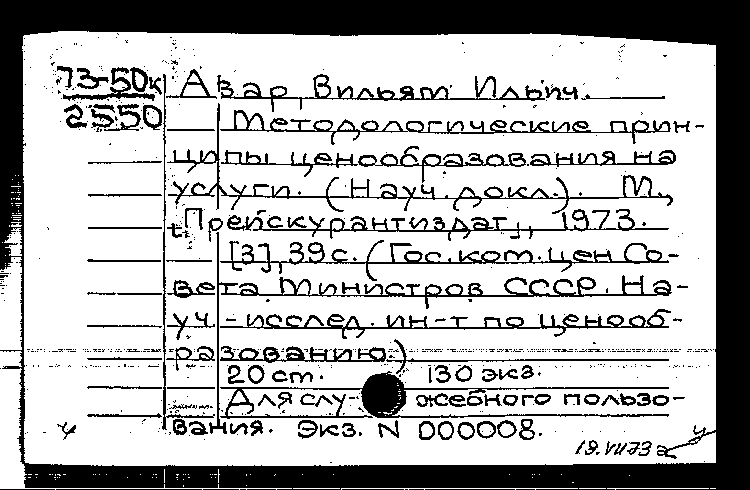 73-50к
2550
Азар, Вильям Ильич.
Методологические прин-
ципы ценообразования на
услуги. (Науч. докл.). М.,
„Прейскурантиздат", 1973.
[3], 39 с. (Гос. ком. цен Со-
вета Министров СССР. На-
уч.-исслед. ин-т по ценооб-
разованию.)
20 cm. 130 экз.
Для слу- жебного пользо-
вания. Экз. N 000008.
19.VII73г